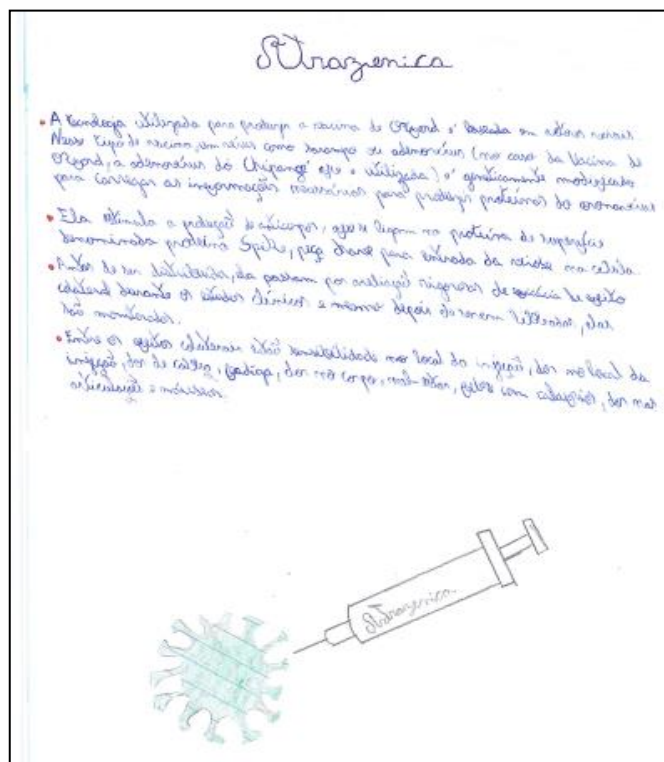 Astrazenica
• A tecnologia utilizada para produzir a vacina de Oxford é baseada em vetores virais
Nesse tipo de vacina, um vírus como sarampo ou adenovírus (no caso da Vacina de
Oxford, a adenovírus do Chipanzé que é utilizada) é geneticamente modificado
para carregar as informações necessárias para produzir proteínas do coronavírus
• Ela estimula a produção de anticorpos, que se ligam na proteína de superfície
denominada proteína Spike, peça chave para entrada da na celula
• Antes de ser distribuidas, ela passam por avaliação rigorosas de eficácia de efeito
colateral durante os estudos clínicos e mesmo depois de serem liberadas, elas
são monitoradas.
• Entre os efeitos colaterais estão sensibilidade no local da injeção, dor no local da
injeção, dor de cabeça, fadiga, dor no corpo, mal-estar, febre com calafrios, dor nas
articulação e náuseas.
Astrazenica